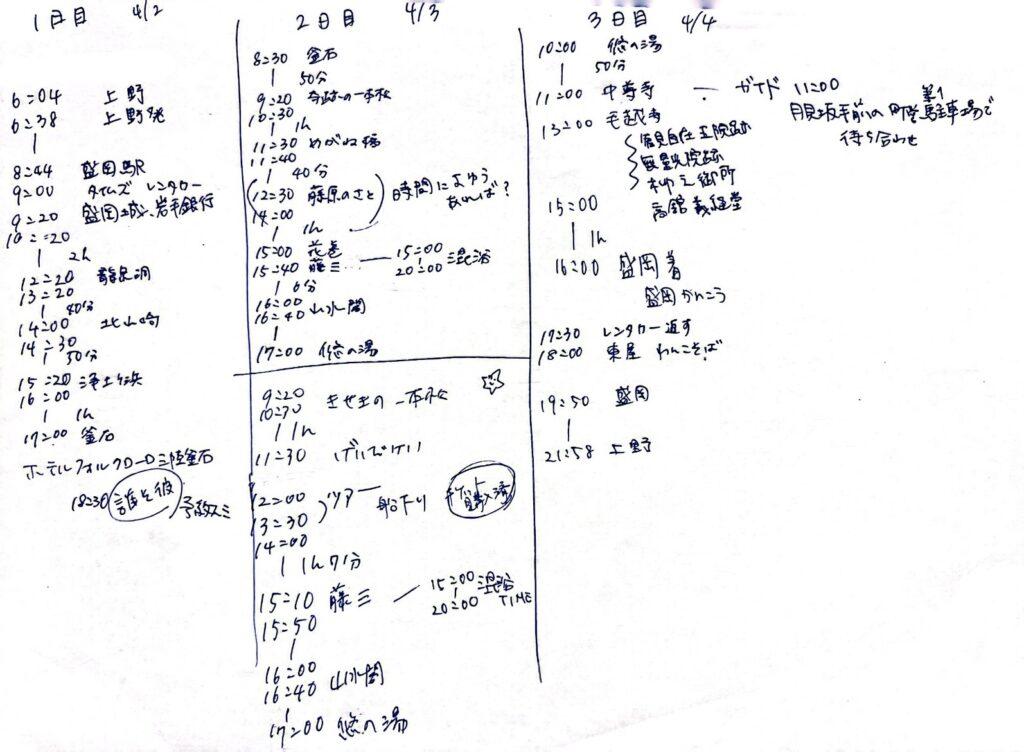 1日目 4/2
6:04 上野
6:38 上野発
8:44 盛岡駅
9:00 タイムズレンタカー
9:20 盛岡城、岩手銀行
10:20
2h
12:20 龍泉洞
13:20
40分
14:00 北山崎
14:30
50分
15:20 浄土ヶ浜
16:00
1h
17:00 釜石
ホテルフォルクローロ三陸釜石
18:30 誰そ彼 予約スミ
2日目 4/3
8:30 釜石
50分
9:20 奇跡の一本松
10:30
1h
11:30 めがね橋
11:40
40分
(12:30 藤原のさと) 時間によゆうあれば?
14:00
1h
15:00 花巻
15:40 藤三 — 15:00 20:00 混浴
6分
16:00
16:40 山水閣
17:00 悠の湯
9:20 きせきの一本松
10:30
1h
11:30 げいびけい
12:00 ツアー 船下り チケット購入済
13:30
14:00
1h
15:10 藤三 — 15:00 20:00 混浴TIME
15:50
16:00
16:40 山水閣
17:00 悠の湯
3日目 4/4
10:00 悠の湯
50分
11:00 中尊寺 — ガイド 11:00
月見坂手前の町営第1駐車場で
待ち合わせ
13:00 毛越寺
観自在王院跡
無量光院跡
柳之御所
15:00 高館義経堂
1h
16:00 盛岡着
盛岡かんこう
17:30 レンタカー返す
18:00 東屋 わんこそば
19:50 盛岡
21:58 上野